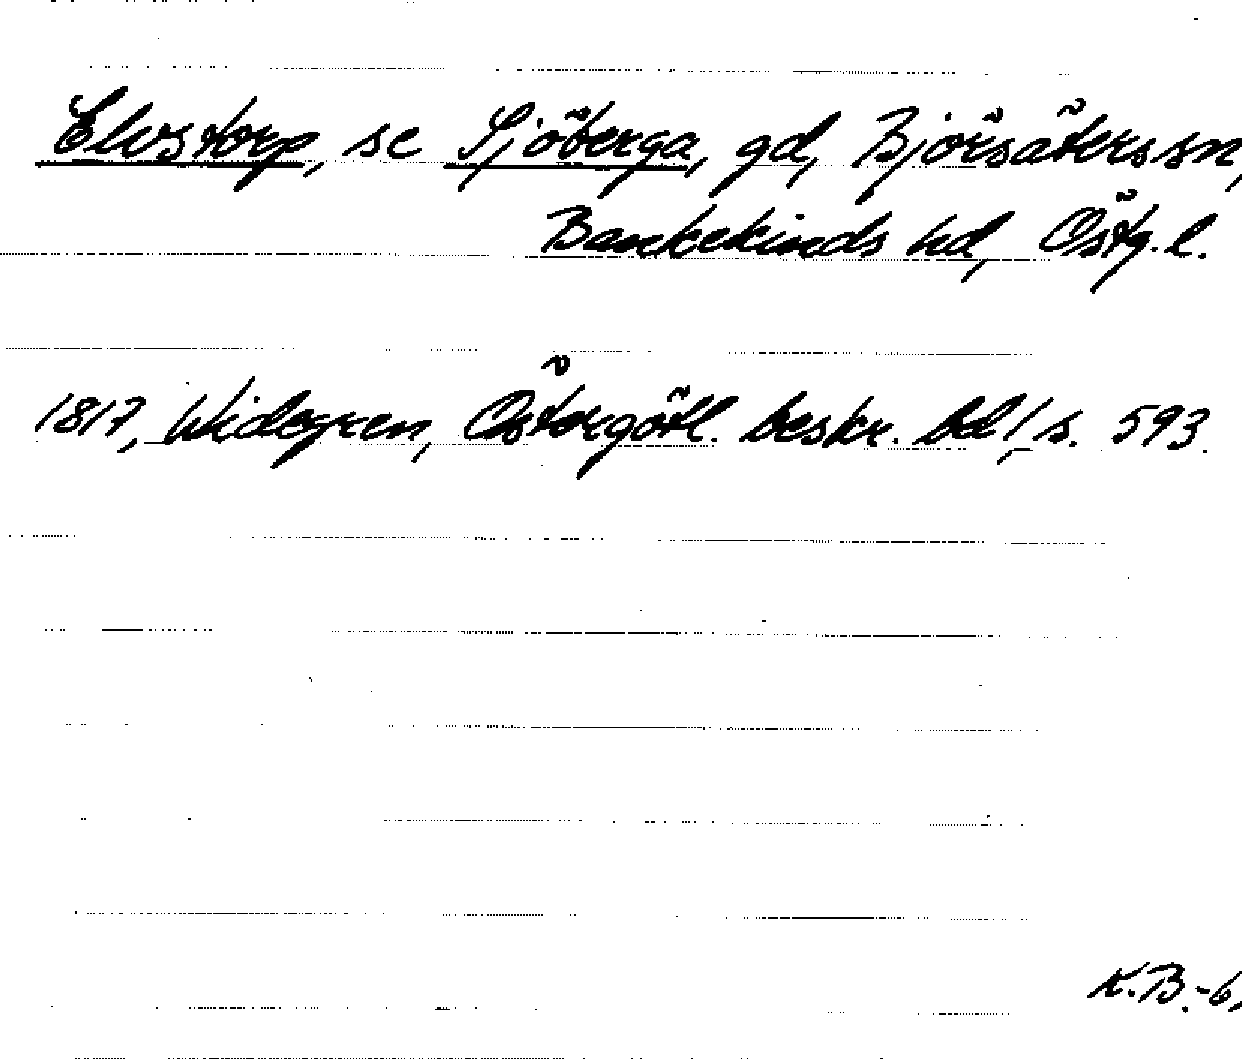 Elvstorp, se Sjöberga, gd, Björsäters sn,
Bankekinds hd, Östg. l.
1817, Widegren, Östergötl. beskr. bd 1, s. 593.
K.B.-6,